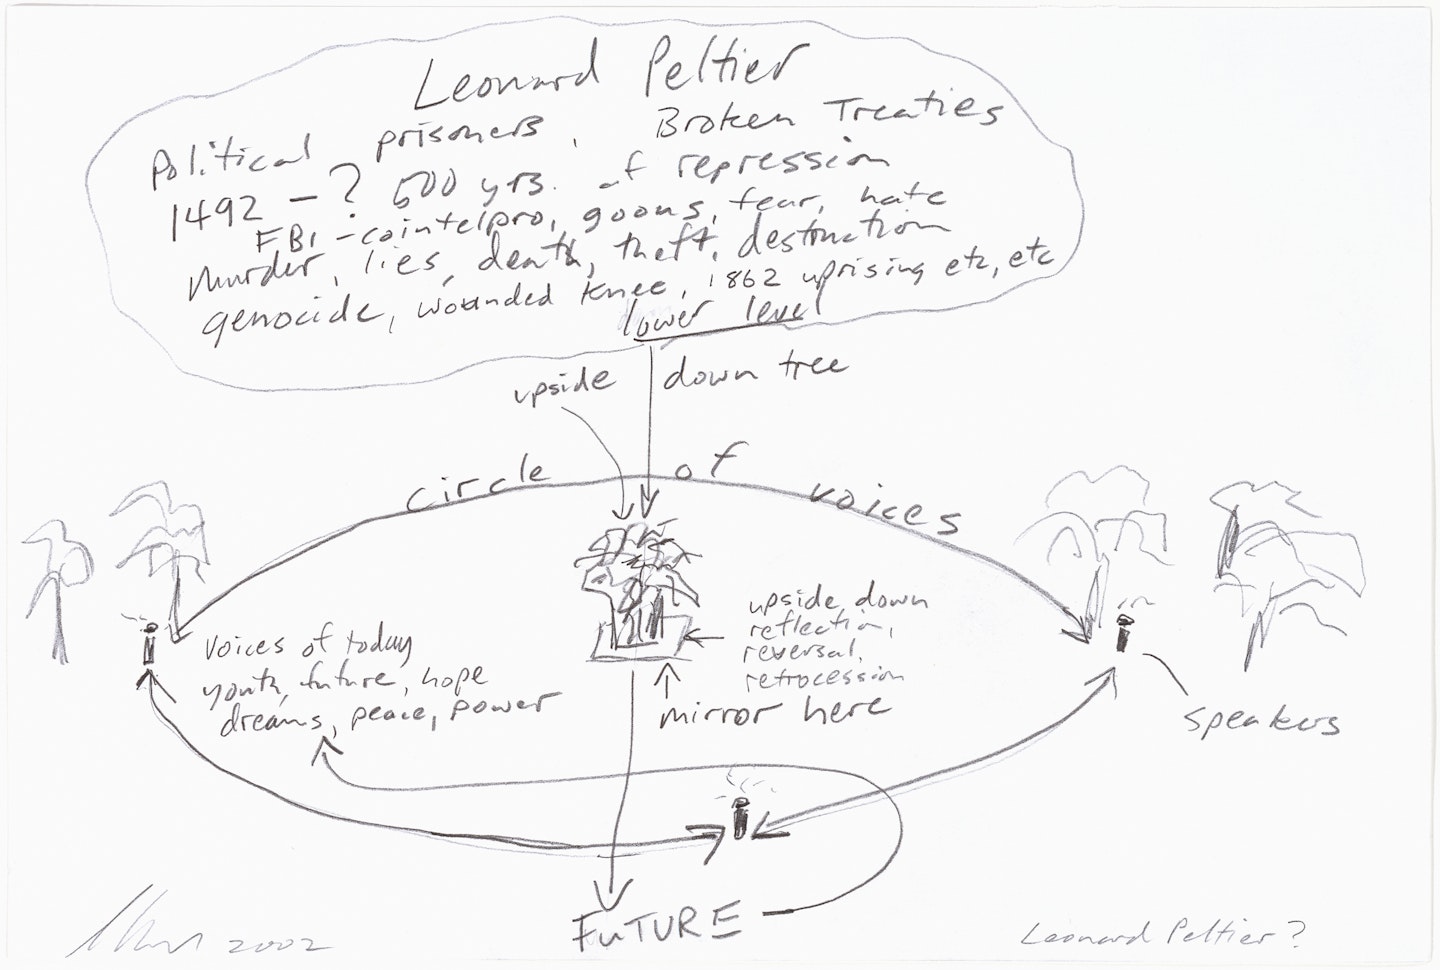 Leonard Peltier
Political prisoners, Broken Treaties
1492 - ? 500 yrs. of repression
FBI - cointelpro, goons, fear, hate
Murder, lies, death, theft, destruction
genocide, wounded knee, 1862 uprising etc, etc
lower level
upside down tree
circle of voices
voices of today
youth, future, hope
dreams, peace, power
upside down
reflection,
reversal,
retrocession
mirror here
speakers
FuTURE
2002
Leonard Peltier?